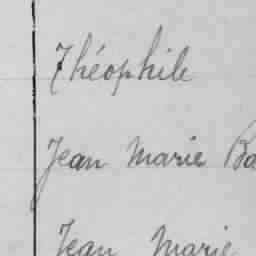 Théophile
Jean Marie Ba
Jean Marie